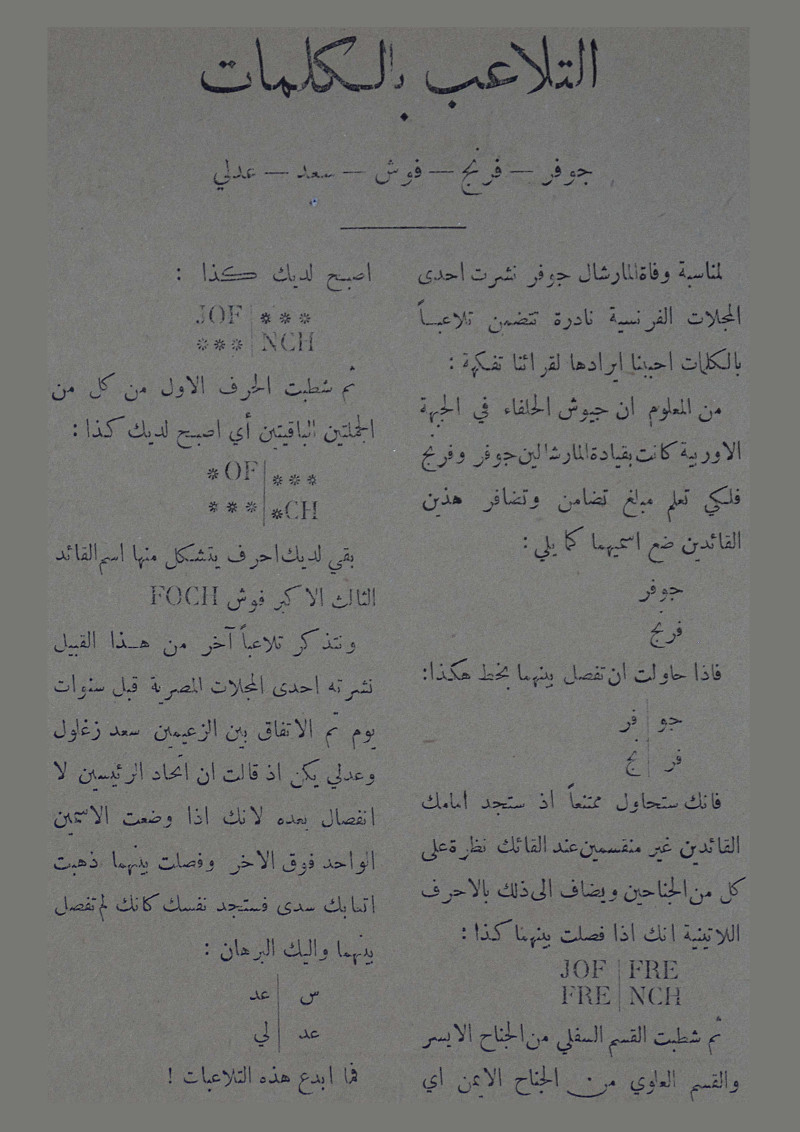 التلاعب بالكلمات
جوفر — فرنج — فوش — سعد — عدلي
لمناسبة وفاة المارشال جوفر نشرت احدى
المجلات الفرنسية نادرة تتضمن تلاعباً
بالكلمات احببنا ايرادها لقرائنا تفكهة :
من المعلوم ان جيوش الحلفاء في الجبهة
الاوربية كانت بقيادة المارشالين جوفر وفرنج
فلكي تعلم مبلغ تضامن وتضافر هذين
القائدين ضع اسميهما كما يلي :
جوفر
فرنج
فاذا حاولت ان تفصل بينهما بخط هكذا :
جو | فر
فر | نج
فانك ستحاول ممتنعاً اذ ستجد امامك
القائدين غير منقسمين عند القائك نظرة على
كل من الجناحين ويضاف الى ذلك بالاحرف
اللاتينية انك اذا فصلت بينهما كذا :
JOF | FRE
FRE | NCH
ثم شطبت القسم السفلي من الجناح الايسر
والقسم العلوي من الجناح الايمن اي
اصبح لديك كذا :
JOF | ***
*** | NCH
ثم شطبت الحرف الاول من كل من
الجملتين الباقيتين أي اصبح لديك كذا :
*OF | ***
*** | *CH
بقي لديك احرف يتشكل منها اسم القائد
الثالث الاكبر فوش FOCH
ونتذكر تلاعباً آخر من هذا القبيل
نشرته احدى المجلات المصرية قبل سنوات
يوم تم الاتفاق بين الزعيمين سعد زغلول
وعدلي يكن اذ قالت ان اتحاد الرئيسين لا
انفصال بعده لانك اذا وضعت الاسمين
الواحد فوق الاخر وفصلت بينهما ذهبت
اتعابك سدى فستجد نفسك كانك لم تفصل
بينهما واليك البرهان :
س | عد
عد | لي
فما ابدع هذه التلاعبات !